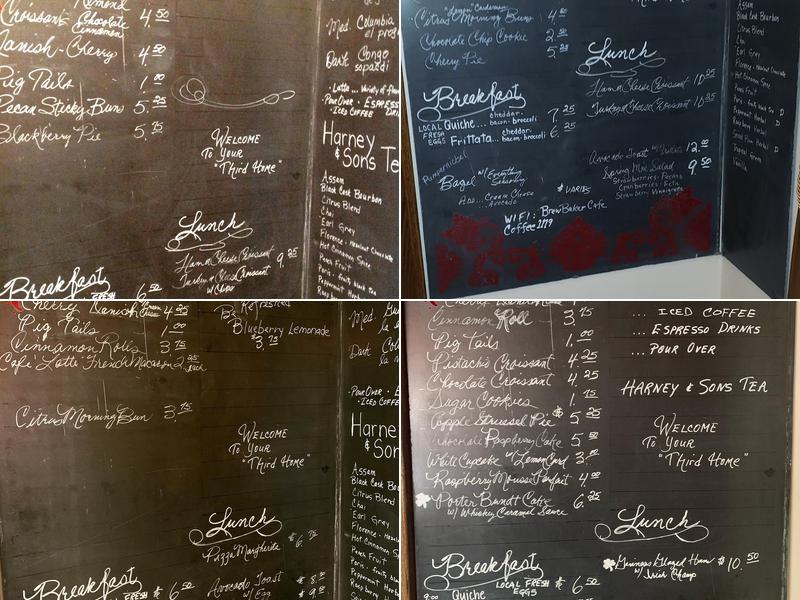 Almond
Croissant Chocolate 4.50
Cinnamon
Danish-Cherry 4.50
Pig Tails 1.00
Pecan Sticky Buns 5.25
Blackberry Pie 5.75
Welcome
To Your
"Third Home"
Lunch
Ham & Cheese Croissant 9.25
Turkey & Cheese Croissant
w/Chips
Breakfast
FRESH 6.50
Med. Columbia
el prog
Dark Congo
sopacdi
· Latte... Variety of
· Pour Over · Espresso
· Iced Coffee
Harney
& Sons Te
Assam
Black Cask Bourbon
Citrus Blend
Chai
Earl Grey
Florence - Hazelnut Chocolate
Hot Cinnamon Spice
Peach Fruit
Paris - fruits black
Peppermint Herbal
Raspberry
Citrus Morning Buns 4.50
Chocolate Chip Cookie 2.50
Cherry Pie 5.25
Lunch
Ham & Cheese Croissant 10.25
Turkey & Cheese Croissant 10.25
Breakfast
LOCAL FRESH EGGS
Quiche... cheddar-bacon-broccoli 7.25
Frittata... cheddar-bacon-broccoli 6.25
Pumpernickel
Bagel w/ Everything Seasoning
Add... Cream Cheese
Avocado
$ VARIES
Avocado Toast 12.00
Spring Mix Salad 9.50
Strawberries-Pecans
Cranberries-Feta
Strawberry Vinaigrette
WIFI: BrewBaker Cafe
Coffee1119
Assam
Black Cask Bourbon
Citrus Blend
Chai
Earl Grey
Florence - Hazelnut Chocolate
Hot Cinnamon Spice
Peach Fruit
Paris - fruits black tea
Peppermint Herbal
Raspberry Herbal
Vanilla
Cherry Danish 4.25
Pig Tails 1.00
Cinnamon Rolls 3.75
Cafe Latte French Macaron 2.25 each
Citrus Morning Bun 3.75
Blueberry Lemonade
$3.75
Welcome
To Your
"Third Home"
Lunch
Pizza Margherita $6.75
Breakfast
FRESH $6.50
Avocado Toast $8.
w/ Egg
Med.
Dark
· Pour Over · E
· Iced Coffee
Harne
& Sons
Assam
Black Cask Bourbon
Citrus Blend
Chai
Earl Grey
Florence - Hazeln
Hot Cinnamon Spice
Peach Fruit
Paris - fruits black
Peppermint Herbal
Raspberry
Cinnamon Roll 3.75
Pig Tails 1.00
Pistachio Croissant 4.25
Chocolate Croissant 4.25
Sugar Cookies 1.75
Apple Streusel Pie $5.25
Chocolate Raspberry Cake 5.50
White Cupcake w/ Lemon Curd 3.00
Raspberry Mousse Parfait 4.00
Porter Bundt Cake 6.25
w/ Whiskey Caramel Sauce
... Iced Coffee
... Espresso Drinks
... Pour Over
Harney & Sons Tea
Welcome
To Your
"Third Home"
Lunch
Guinness Glazed Ham $10.50
w/ Irish Champ
Breakfast
LOCAL FRESH EGGS $6.50
9:00 Quiche